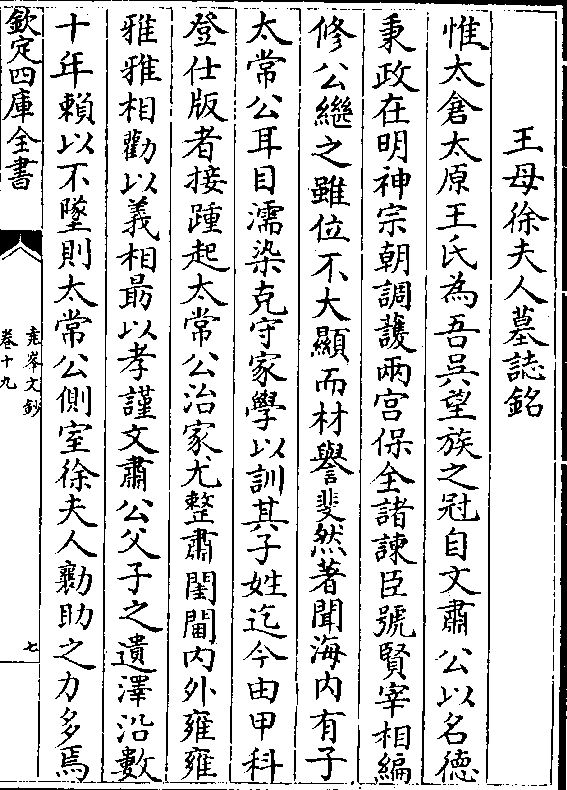 王母徐夫人墓誌銘
惟太倉太原王氏為吾吳望族之冠自文肅公以名德
秉政在明神宗朝調護兩宮保全諸諫臣號賢宰相編
修公繼之雖位不大顯而材譽斐然著聞海内有子
太常公耳目濡染克守家學以訓其子姓迄今由甲科
登仕版者接踵起太常公治家尤整肅閨閫内外雍雍
雅雅相勸以義相朂以孝謹文肅公父子之遺澤沿數
十年賴以不墜則太常公側室徐夫人勷助之力多焉
欽定四庫全書
堯峯文鈔
卷十九
七